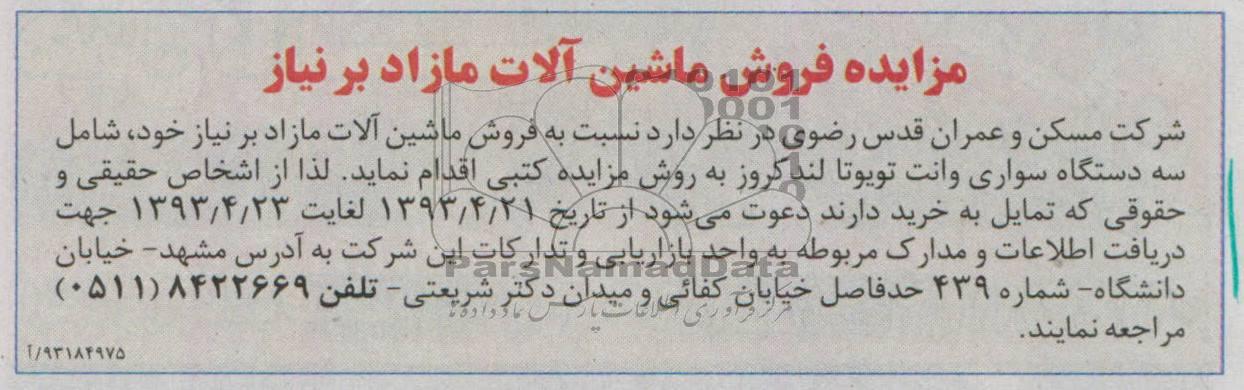 مزایده فروش ماشین آلات مازاد بر نیاز
شرکت مسکن و عمران قدس رضوی در نظر دارد نسبت به فروش ماشین آلات مازاد بر نیاز خود، شامل
سه دستگاه سواری وانت تویوتا لندکروز به روش مزایده کتبی اقدام نماید. لذا از اشخاص حقیقی و
حقوقی که تمایل به خرید دارند دعوت می‌شود از تاریخ ۱۳۹۳٫۴٫۲۱ لغایت ۱۳۹۳٫۴٫۲۳ جهت
دریافت اطلاعات و مدارک مربوطه به واحد بازاریابی و تدارکات این شرکت به آدرس مشهد- خیابان
دانشگاه- شماره ۴۳۹ حدفاصل خیابان کفائی و میدان دکتر شریعتی- تلفن ۸۴۲۲۶۶۹ (۰۵۱۱)
مراجعه نمایند.
۹۳۱۸۴۹۷۵/آ
ParsNamadData